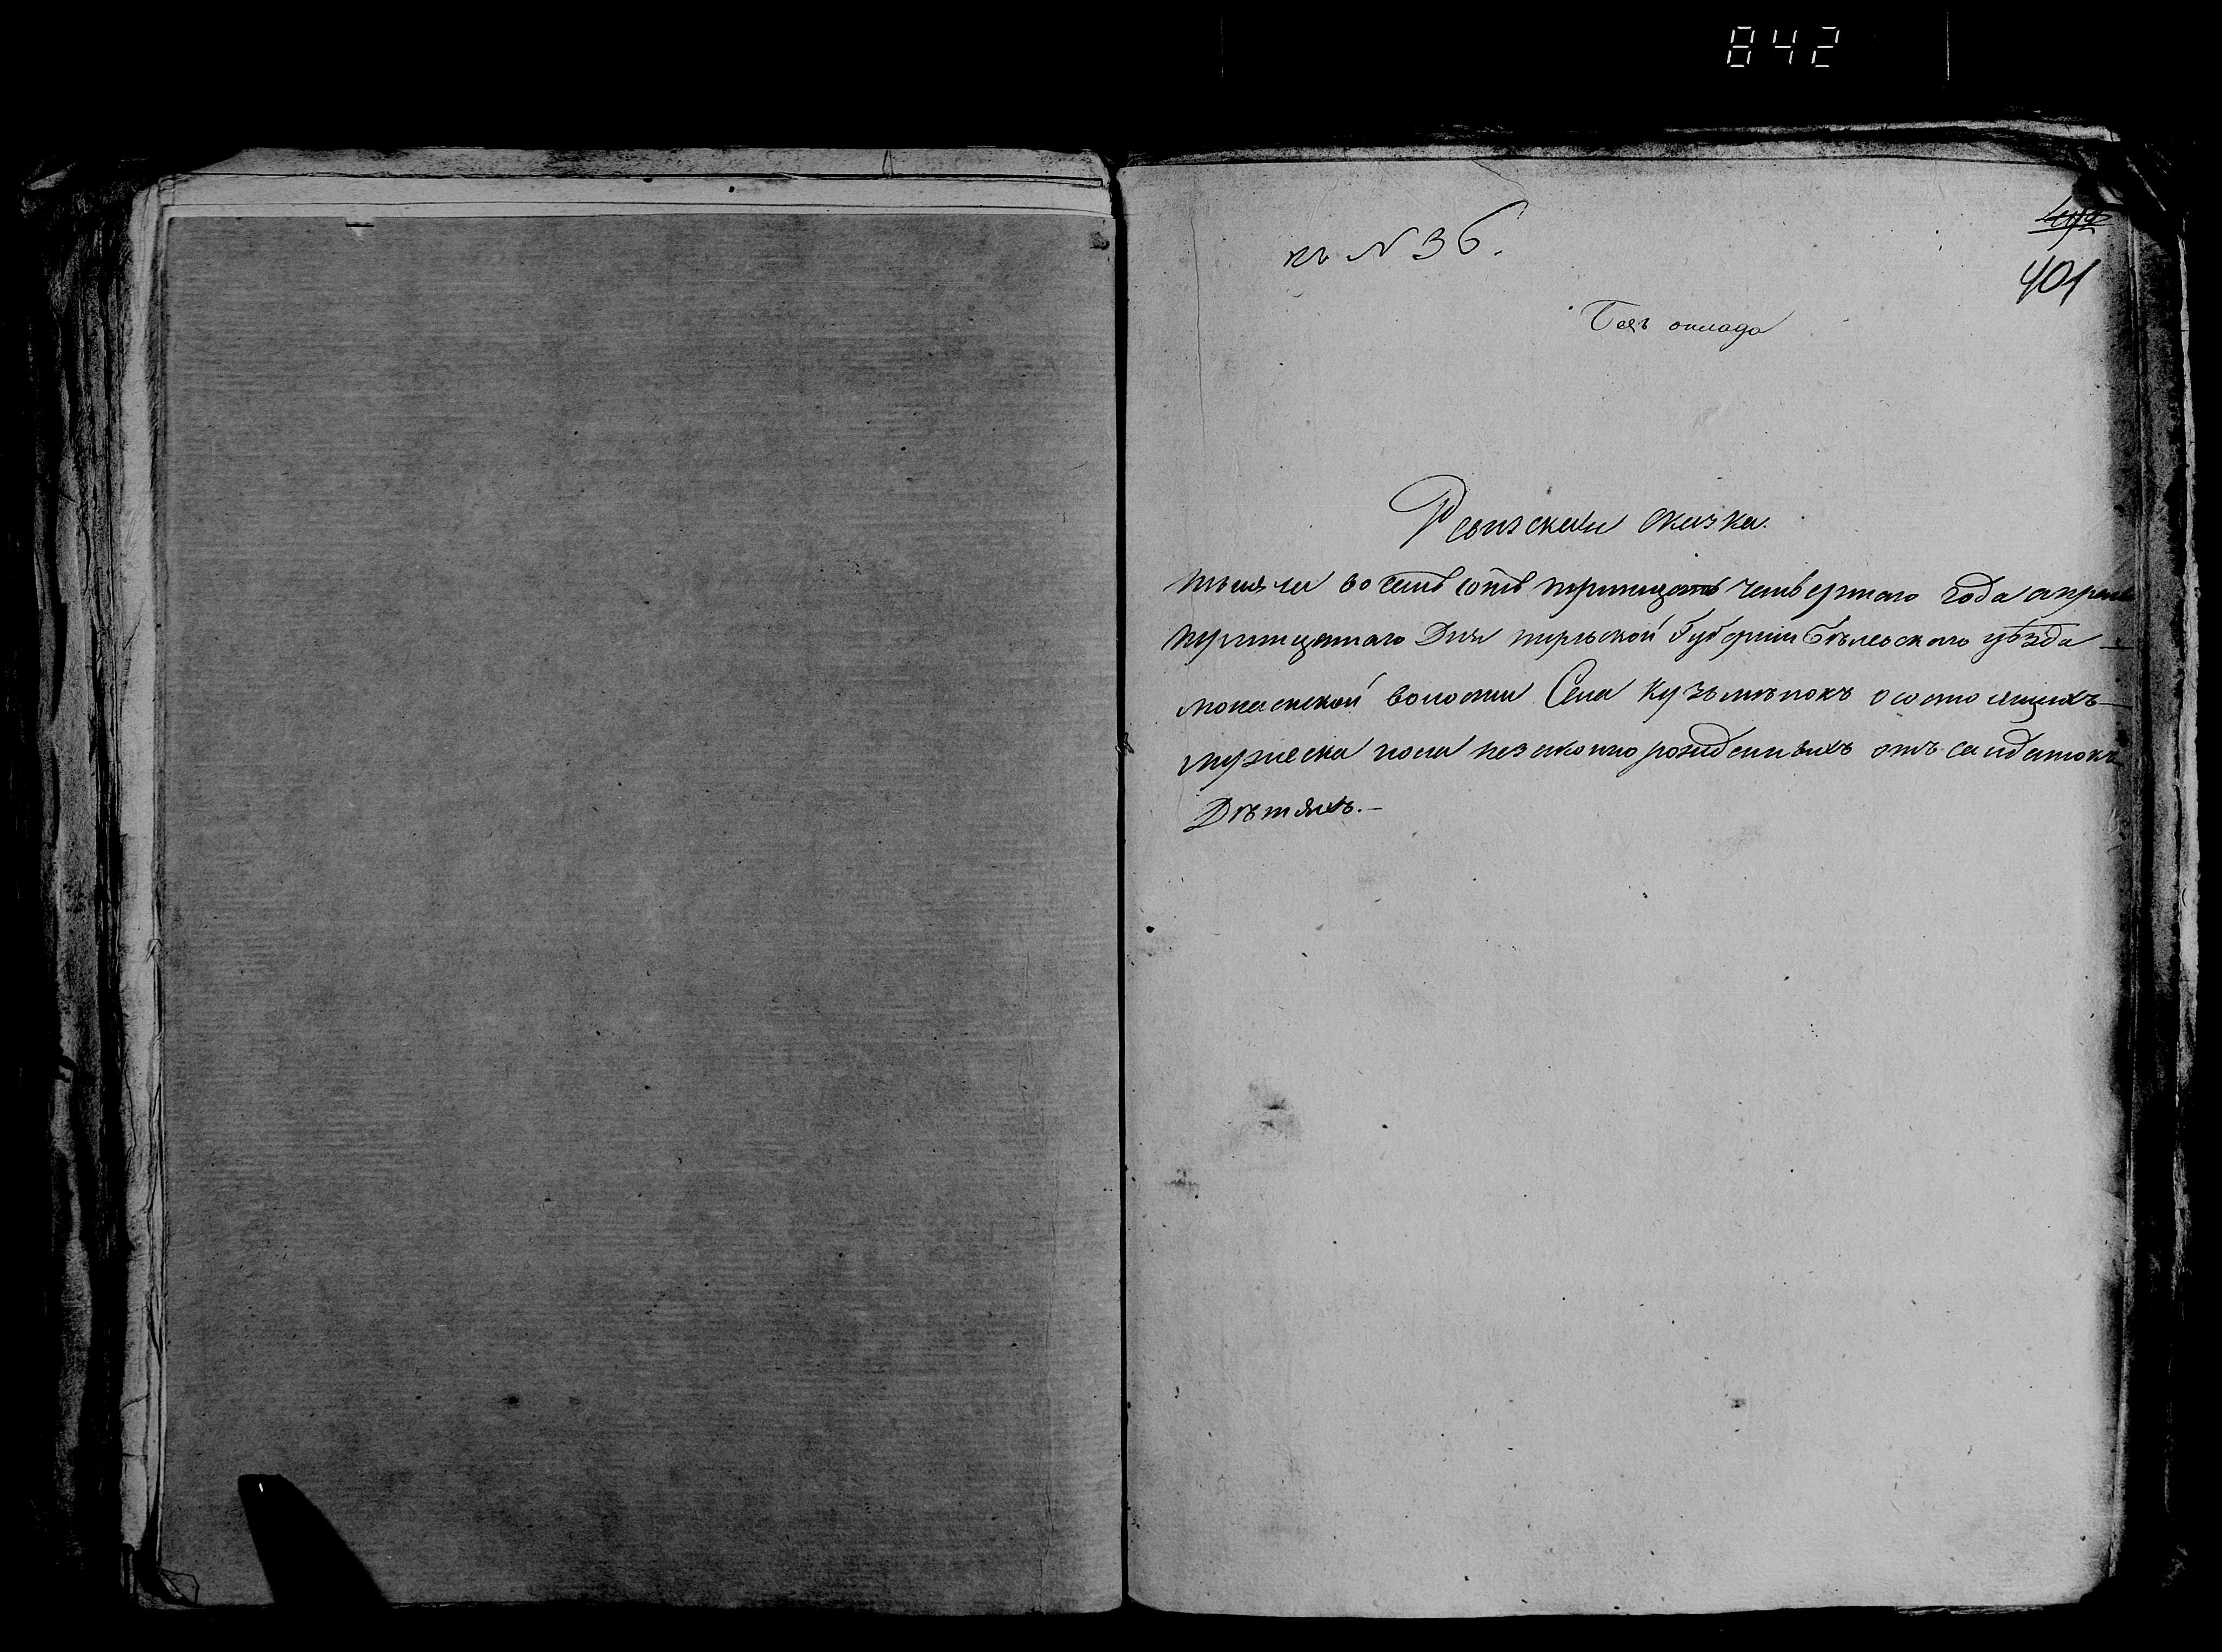 842
къ N 36.
401
Безъ оклада
Ревизская сказка.
тысяча восемь сотъ тритцать четвертаго года апреля
тритцатаго Дня Губернии уѣзда
волости Села о состоящихъ
мужеска пола незаконно рожденныхъ отъ салдатокъ
Дѣтяхъ.-